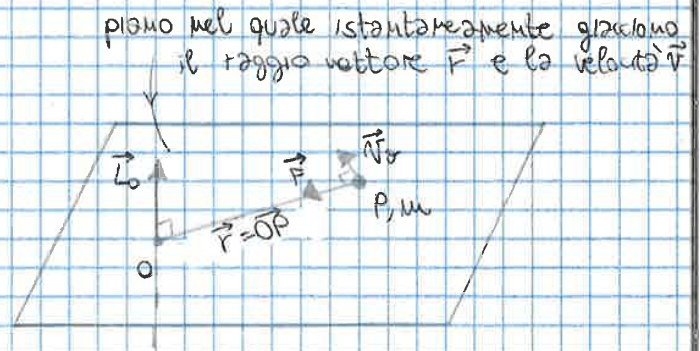 piano nel quale istantaneamente giacciono
il raggio vettore r⃗ e la velocità v⃗
L⃗₀
F⃗
v⃗
P, m
r⃗ = OP⃗
O